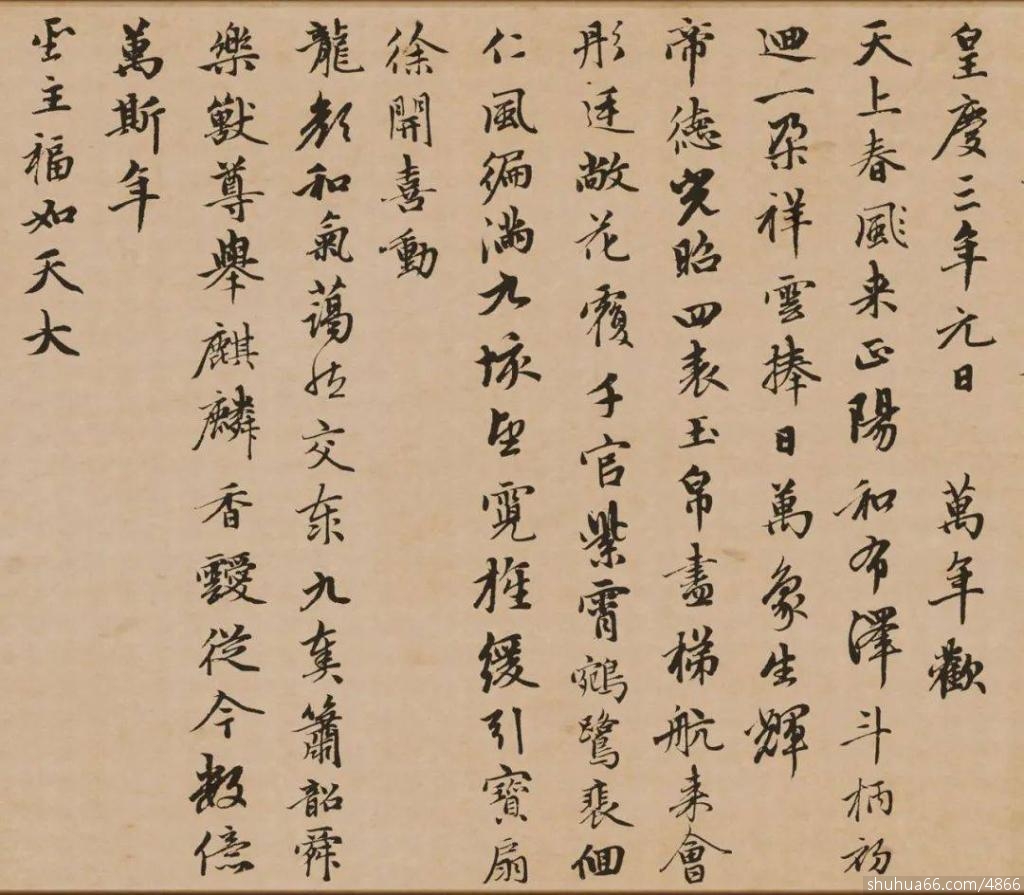 皇慶三年元日 萬年歡
天上春風来正陽和布澤斗柄初
迴一朵祥雲捧日萬象生輝
帝德光昭四表玉帛盡梯航来會
彤廷敞花覆千官紫霄鵷鷺裴佪
仁風徧滿九垓望霓旌緩引寶扇
徐開喜動
龍顏和氣藹然交泰九奏簫韶舜
樂獸尊舉麒麟香靉從今數億
萬斯年
聖主福如天大
shuhua66.com/4866